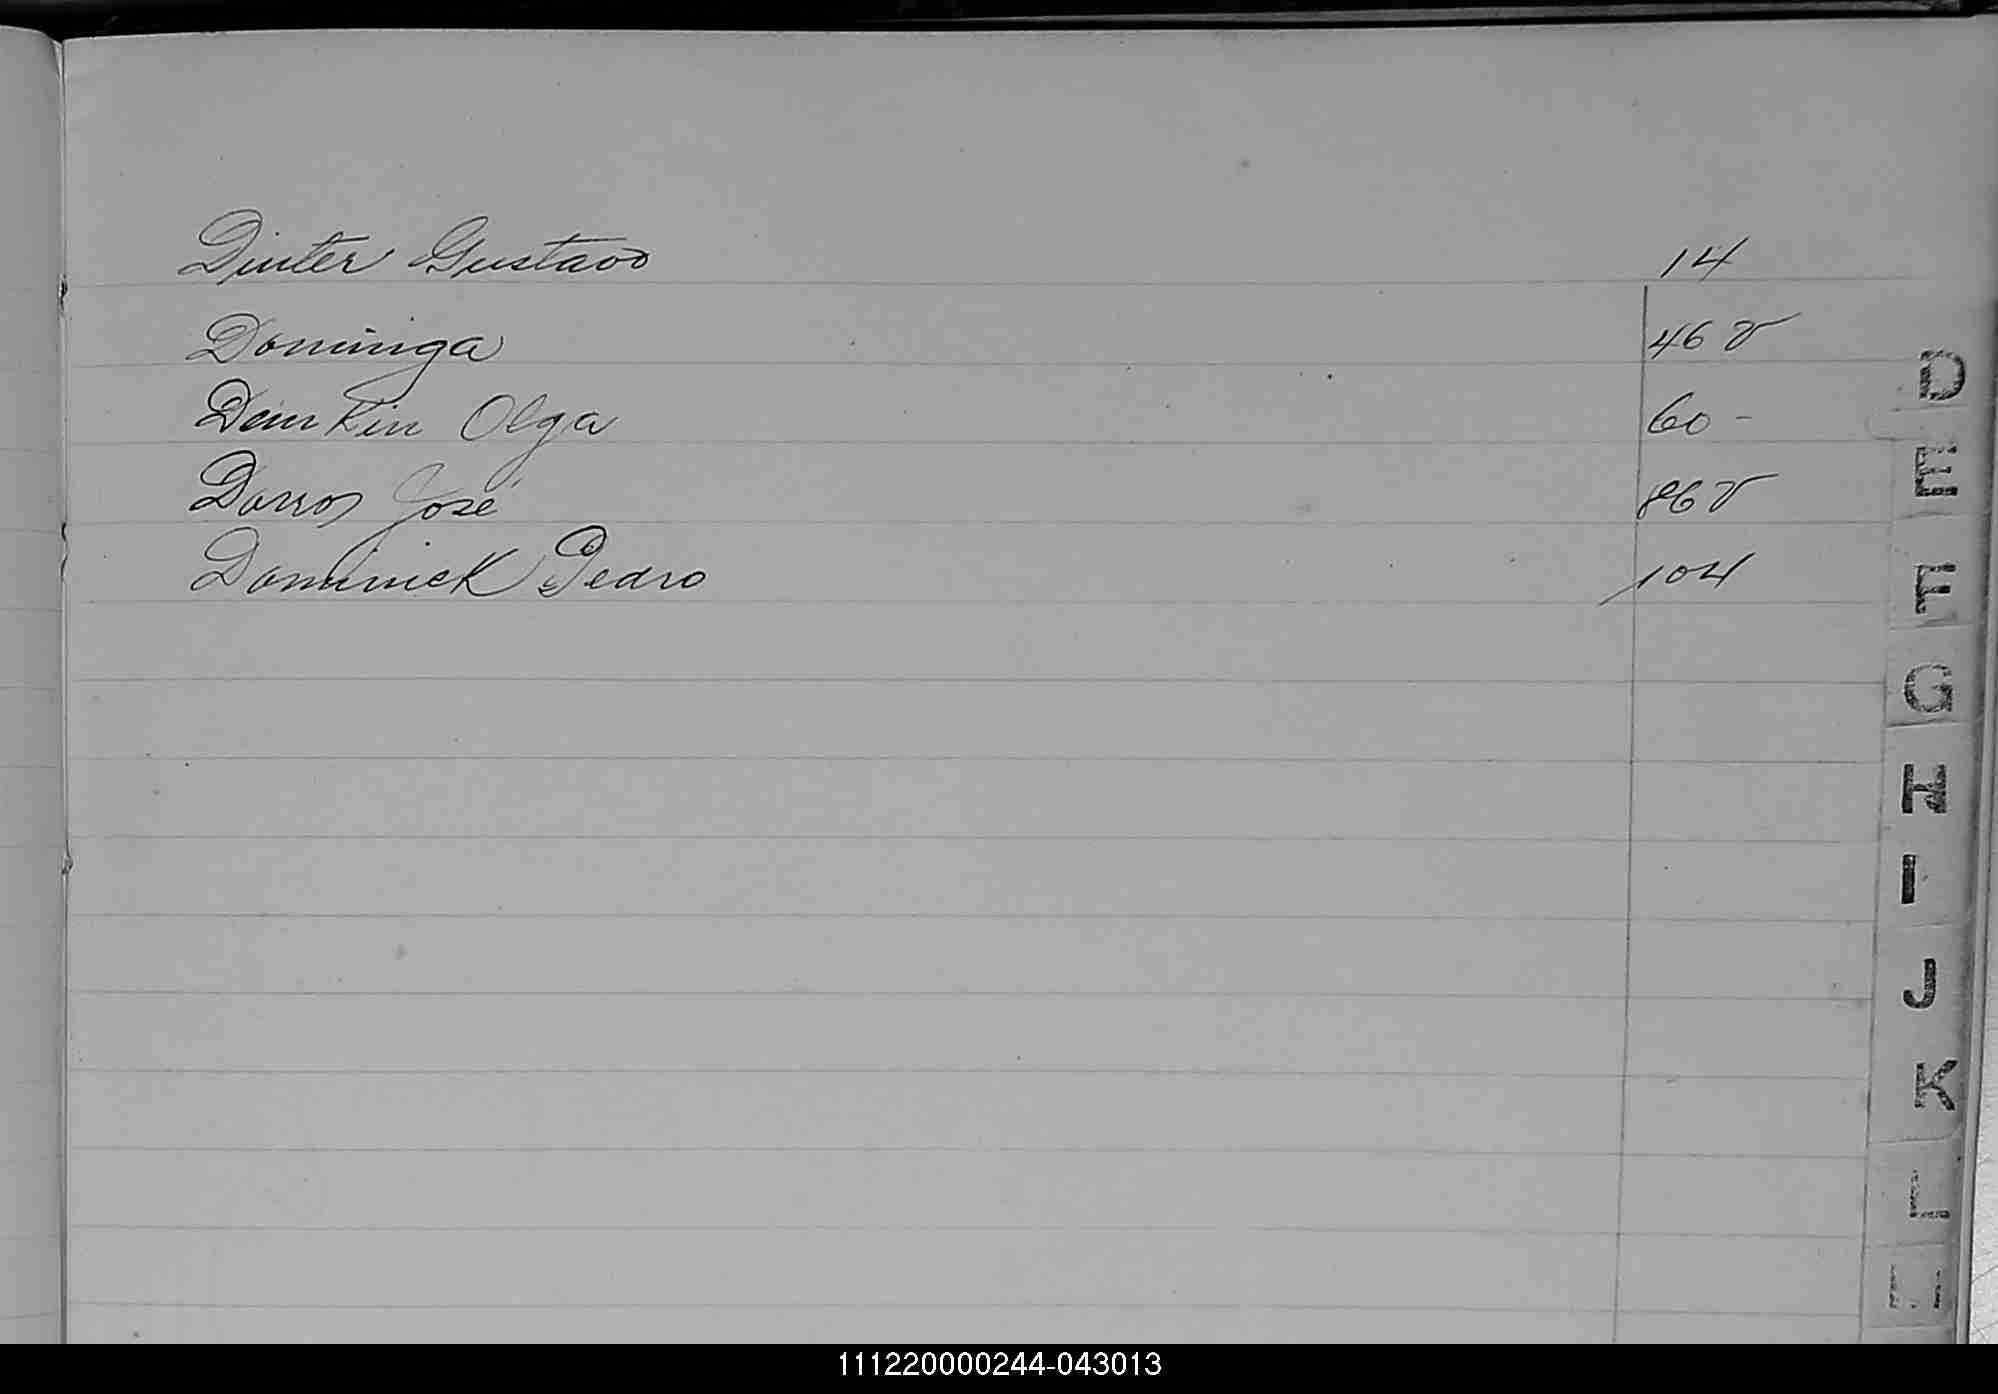 Dinter Gustavo 14
Dominga 46 v
Demkin Olga 60 -
Darros José 86 v
Dominick Pedro 104
D
E
F
G
H
I
J
K
L
111220000244-043013